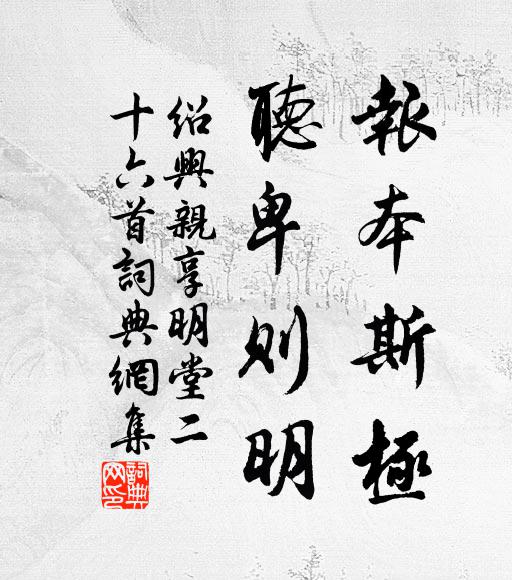 報本斯極
聽卑則明
紹興親享明堂二
十六首詞典網集
詞典
网印